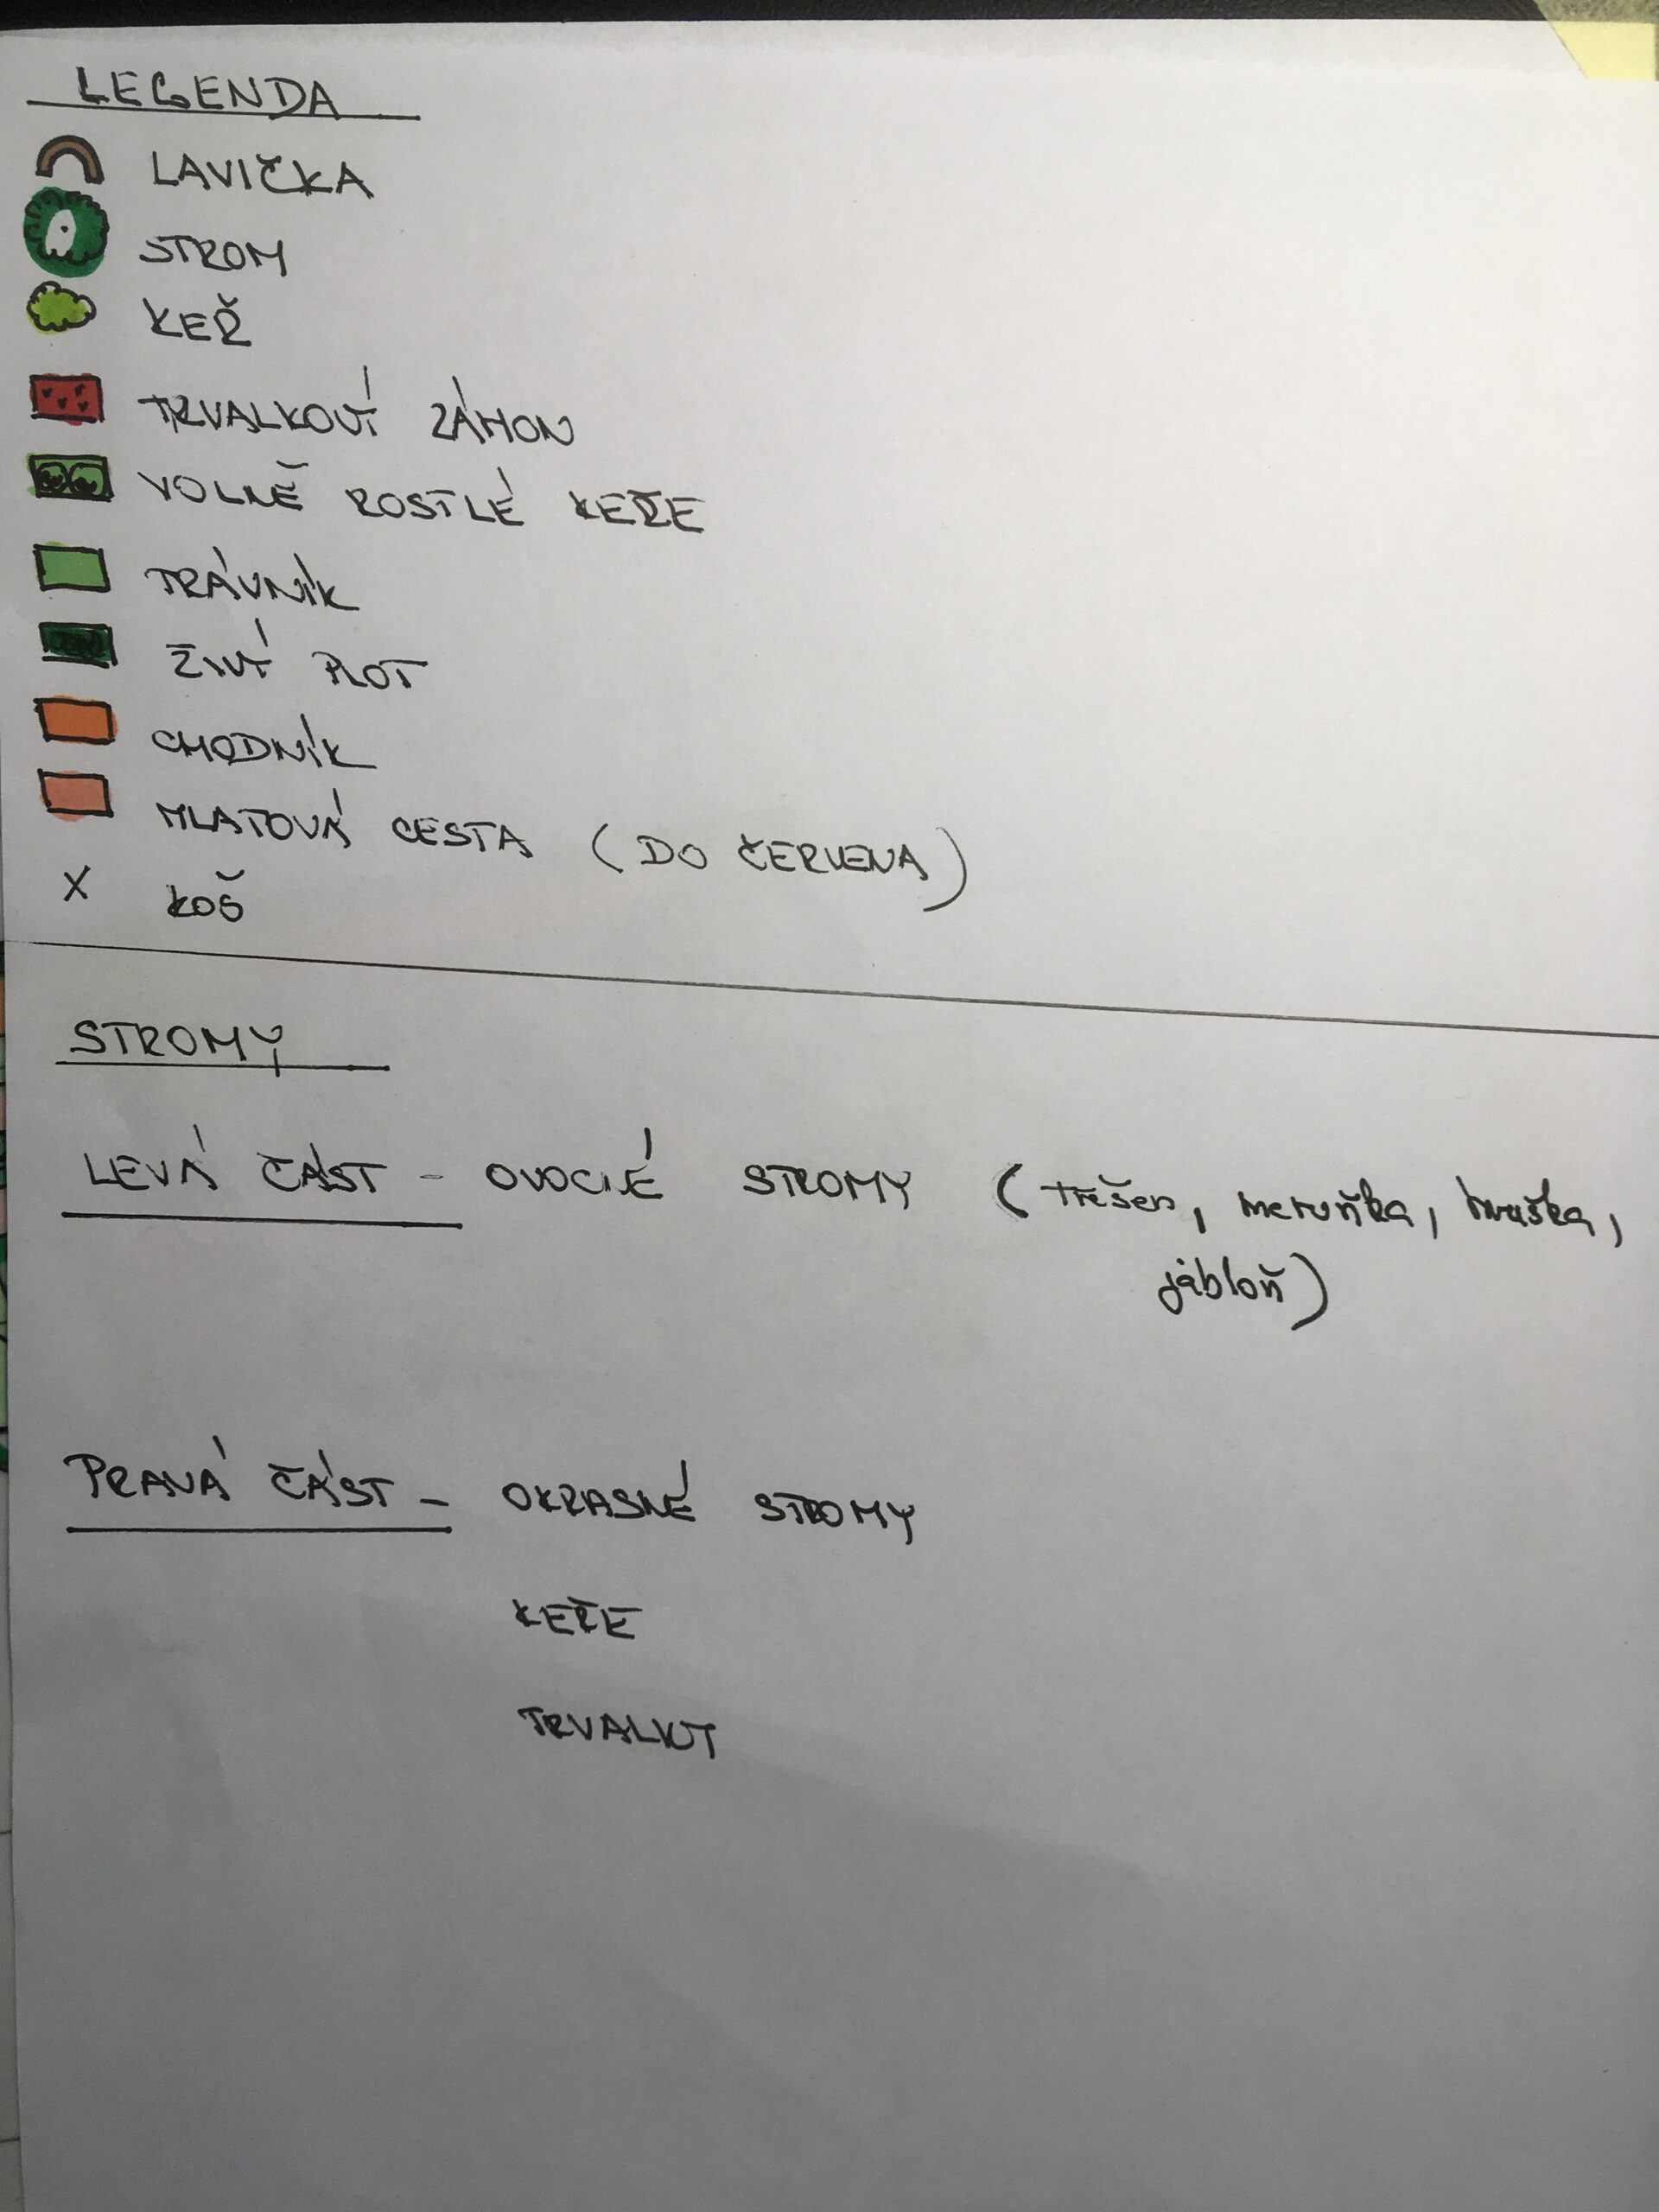 LEGENDA
LAVIČKA
STROM
KEŘ
TRVALKOVÝ ZÁHON
VOLNĚ ROSTLÉ KEŘE
TRÁVNÍK
ŽIVÝ PLOT
CHODNÍK
MLATOVÁ CESTA (DO ČERVENA)
X KOŠ
STROMY
LEVÁ ČÁST - OVOCNÉ STROMY (třešeň, meruňka, hruška,
jabloň)
PRAVÁ ČÁST - OKRASNÉ STROMY
KEŘE
TRVALKY